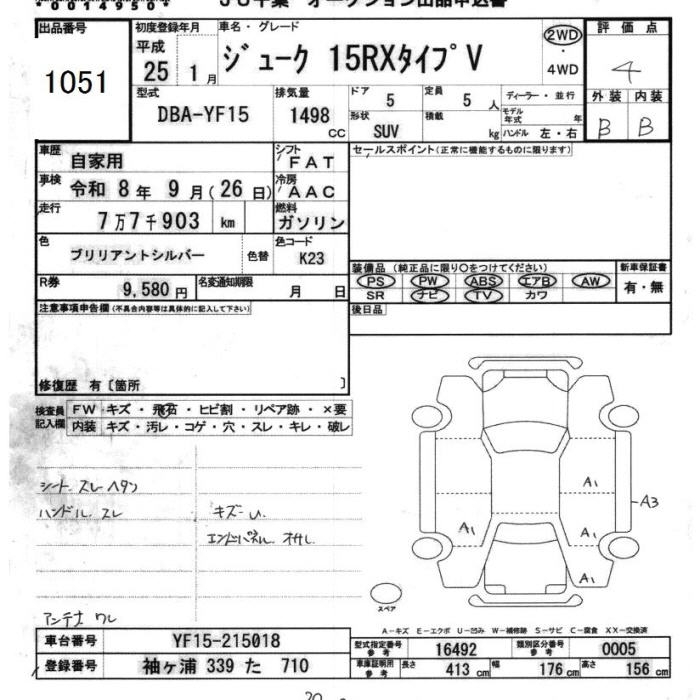 00149504 JU千葉 オークション出品申込書
出品番号
1051
初度登録年月
平成
25 1月
車名・グレード
ジューク 15RXタイプV
2WD
4WD
評価点
4
型式
DBA-YF15
排気量
1498
CC
ドア
5
定員
5 人
ディーラー・並行
モデル年式 年
形状
SUV
積載
kg
ハンドル 左・右
外装 内装
B B
車歴
自家用
シフト
FAT
セールスポイント(正常に機能するものに限ります)
車検
令和 8年 9月(26日)
冷房
AAC
走行
7万7千903 km
燃料
ガソリン
色
ブリリアントシルバー
色替
色コード
K23
装備品(純正品に限り○をつけてください)
新車保証書
PS PW ABS エアB AW
有・無
SR ナビ TV カワ
R券
9,580円
名変通知期限
月 日
後日品
注意事項申告欄(不具合内容等は具体的に記入して下さい)
修復歴 有〔箇所 〕
検査員記入欄
FW キズ・飛石・ヒビ割・リペア跡・×要
内装 キズ・汚レ・コゲ・穴・スレ・キレ・破レ
シート スレ ヘタリ
ハンドル スレ
キズ U
アンテナ ワレ
A1
A3
A1
A1
A1
スペア
A-キズ E-エクボ U-凹み W-補修跡 S-サビ C-腐食 XX-交換済
車台番号
YF15-215018
型式指定番号参考
16492
類別区分番号参考
0005
登録番号
袖ヶ浦 339 た 710
車庫証明用参考
長さ 413 cm
幅 176 cm
高さ 156 cm